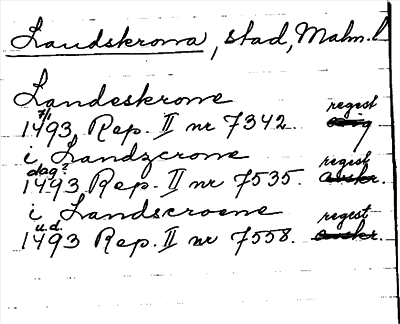 Landskrona, stad, Malm. l
Landeskrone
7/1 regest
1493 Rep. II nr 7342. orig
i Landzcrone
dag? regest
1493 Rep. II nr 7535. avskr.
i Landscroene
u.d. regest
1493 Rep. II nr 7558. avskr.